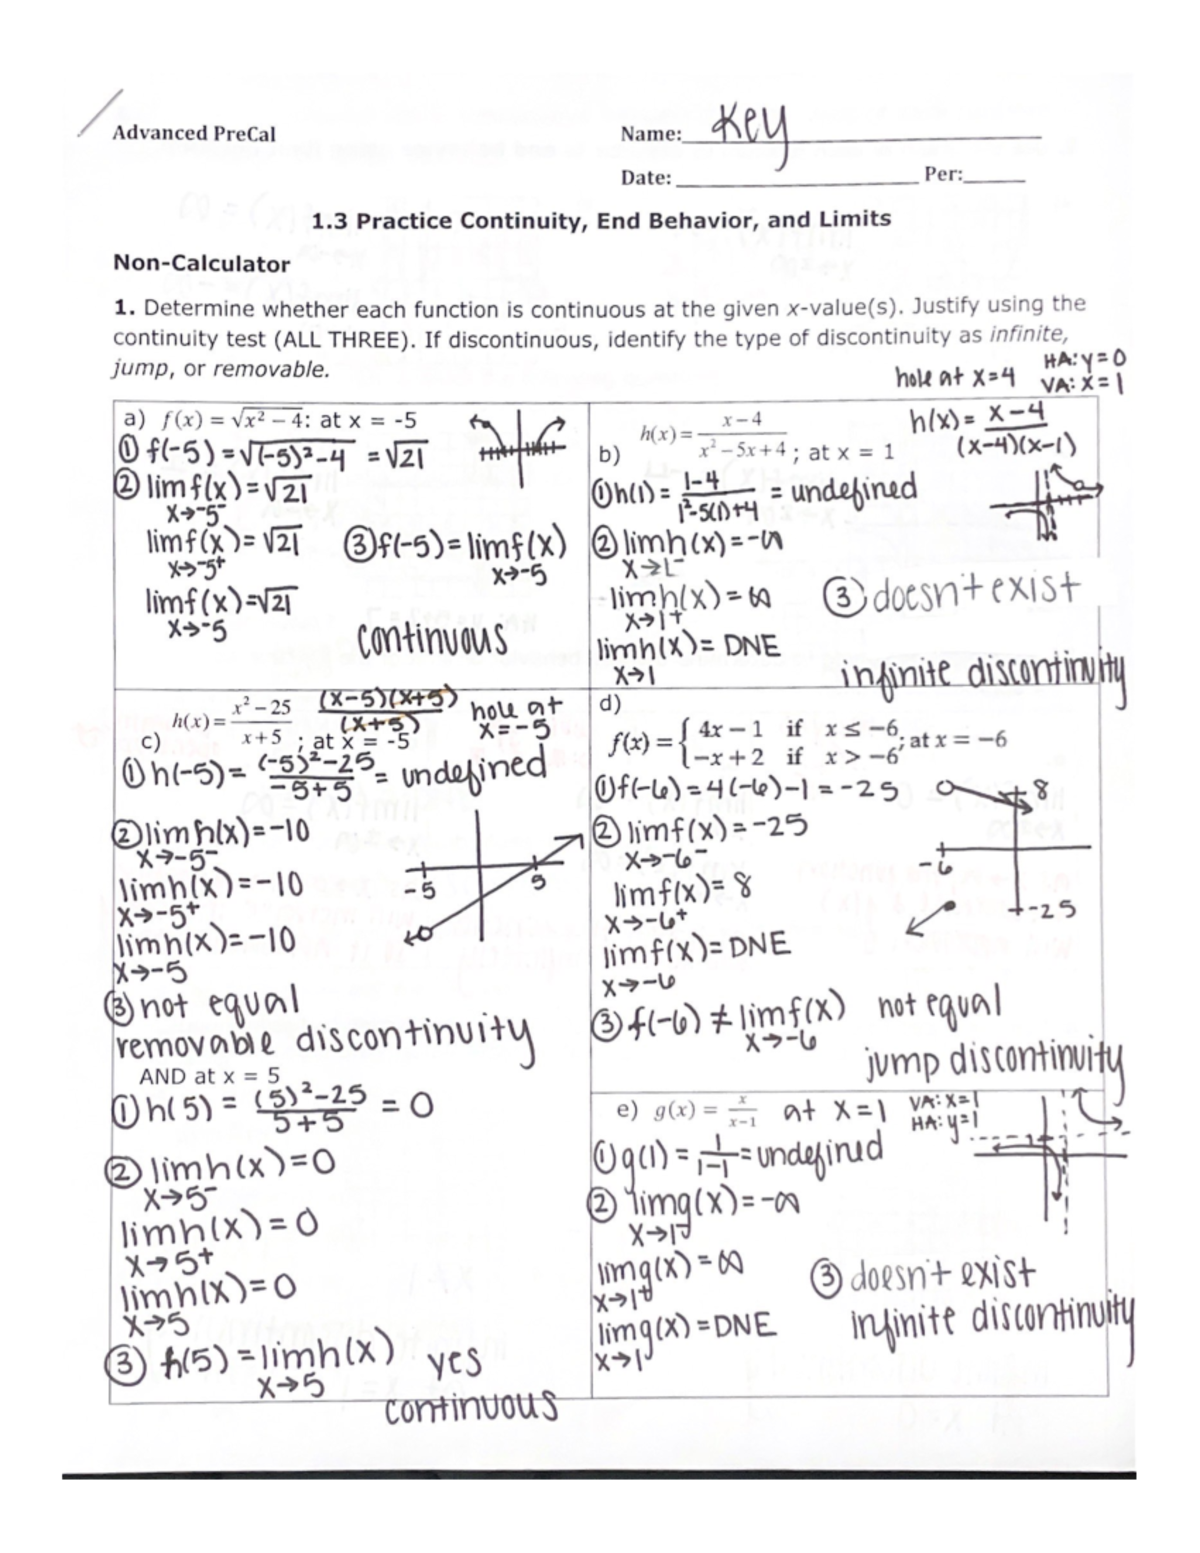 Advanced PreCal
Name: Key
Date: Per:
1.3 Practice Continuity, End Behavior, and Limits
Non-Calculator
1. Determine whether each function is continuous at the given x-value(s). Justify using the
continuity test (ALL THREE). If discontinuous, identify the type of discontinuity as infinite,
jump, or removable.
hole at x=4
HA: y=0
VA: x=1
a) f(x) = √x² – 4: at x = -5
① f(-5) = √(-5)²-4 = √21
② lim f(x) = √21
x→-5⁻
lim f(x) = √21
x→-5⁺
lim f(x) = √21
x→-5
③ f(-5) = lim f(x)
x→-5
continuous
b) h(x) = x – 4 / x² – 5x + 4 ; at x = 1
h(x) = x-4 / (x-4)(x-1)
① h(1) = 1-4 / 1²-5(1)+4 = undefined
② lim h(x) = -∞
x→1⁻
lim h(x) = ∞
x→1⁺
lim h(x) = DNE
x→1
③ doesn't exist
infinite discontinuity
c) h(x) = x² – 25 / x + 5 ; at x = -5
(x-5)(x+5) / (x+5)
hole at
x=-5
① h(-5) = (-5)²-25 / -5+5 = undefined
② lim h(x) = -10
x→-5⁻
lim h(x) = -10
x→-5⁺
lim h(x) = -10
x→-5
-5 5
③ not equal
removable discontinuity
AND at x = 5
① h(5) = (5)²-25 / 5+5 = 0
② lim h(x) = 0
x→5⁻
lim h(x) = 0
x→5⁺
lim h(x) = 0
x→5
③ h(5) = lim h(x) yes
x→5
continuous
d)
f(x) = { 4x – 1 if x ≤ –6
–x + 2 if x > –6 ; at x = –6
① f(-6) = 4(-6)-1 = -25
② lim f(x) = -25
x→-6⁻
lim f(x) = 8
x→-6⁺
lim f(x) = DNE
x→-6
8
-6
-25
③ f(-6) ≠ lim f(x) not equal
x→-6
jump discontinuity
e) g(x) = x / x–1 at x=1
VA: x=1
HA: y=1
① g(1) = 1 / 1-1 = undefined
② lim g(x) = -∞
x→1⁻
lim g(x) = ∞
x→1⁺
lim g(x) = DNE
x→1
③ doesn't exist
infinite discontinuity